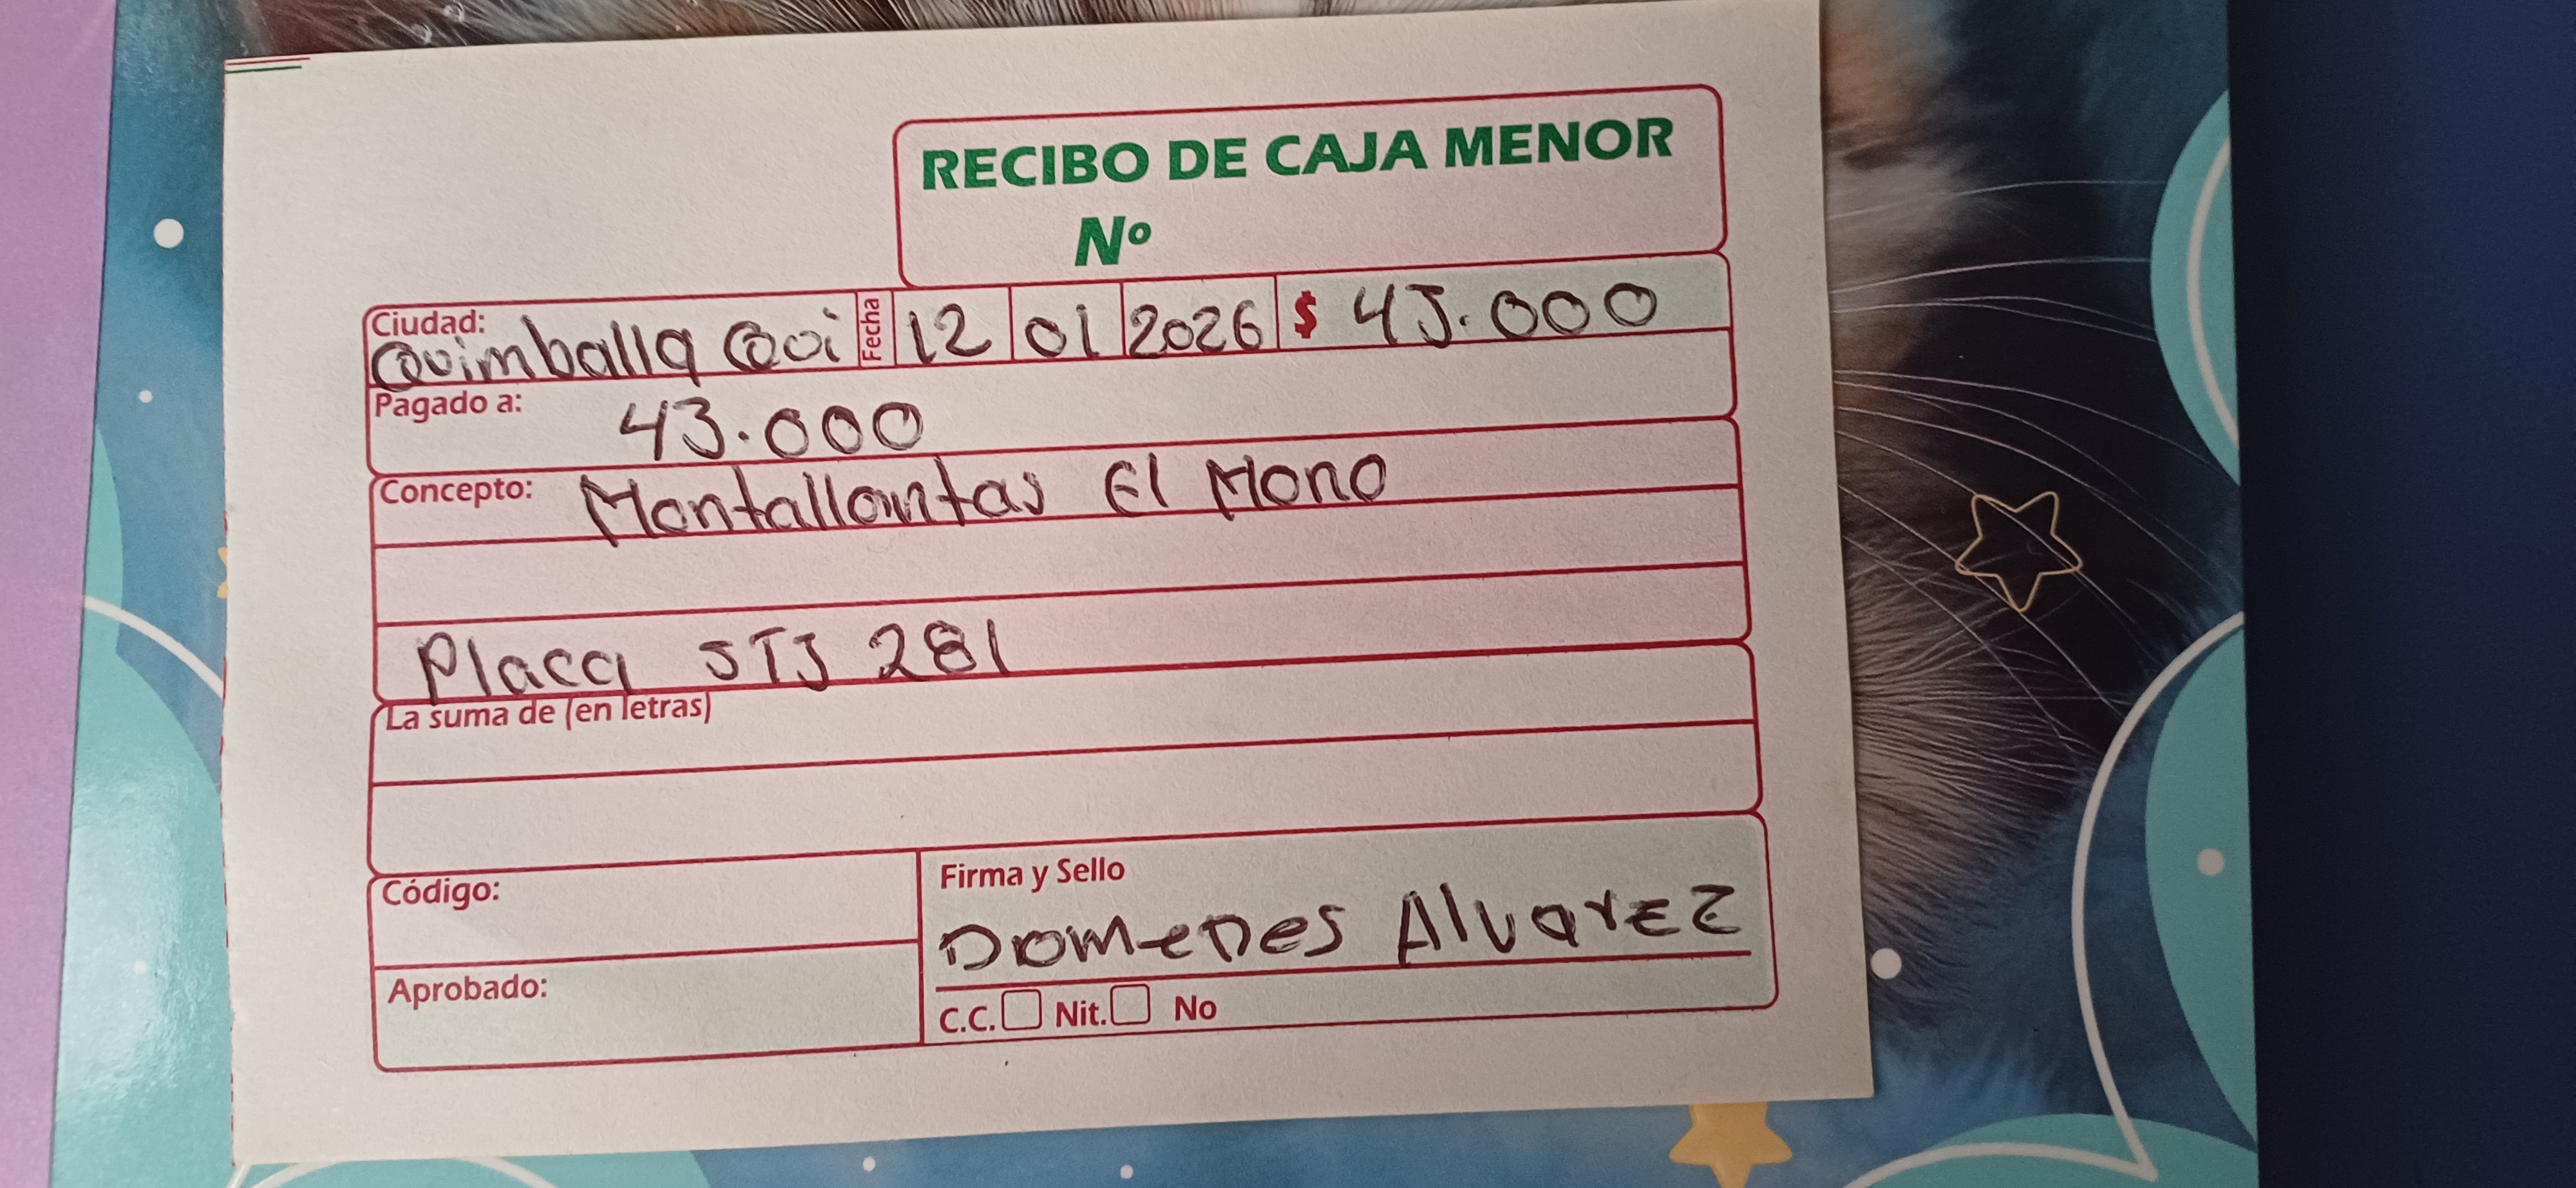 RECIBO DE CAJA MENOR
Nº
Ciudad: Quimballa Qui Fecha 12 01 2026 $ 43.000
Pagado a: 43.000
Concepto: Montallantas El Mono
Placa STJ 281
La suma de (en letras)
Código:
Firma y Sello
Domenes Alvarez
Aprobado:
C.C. Nit. No